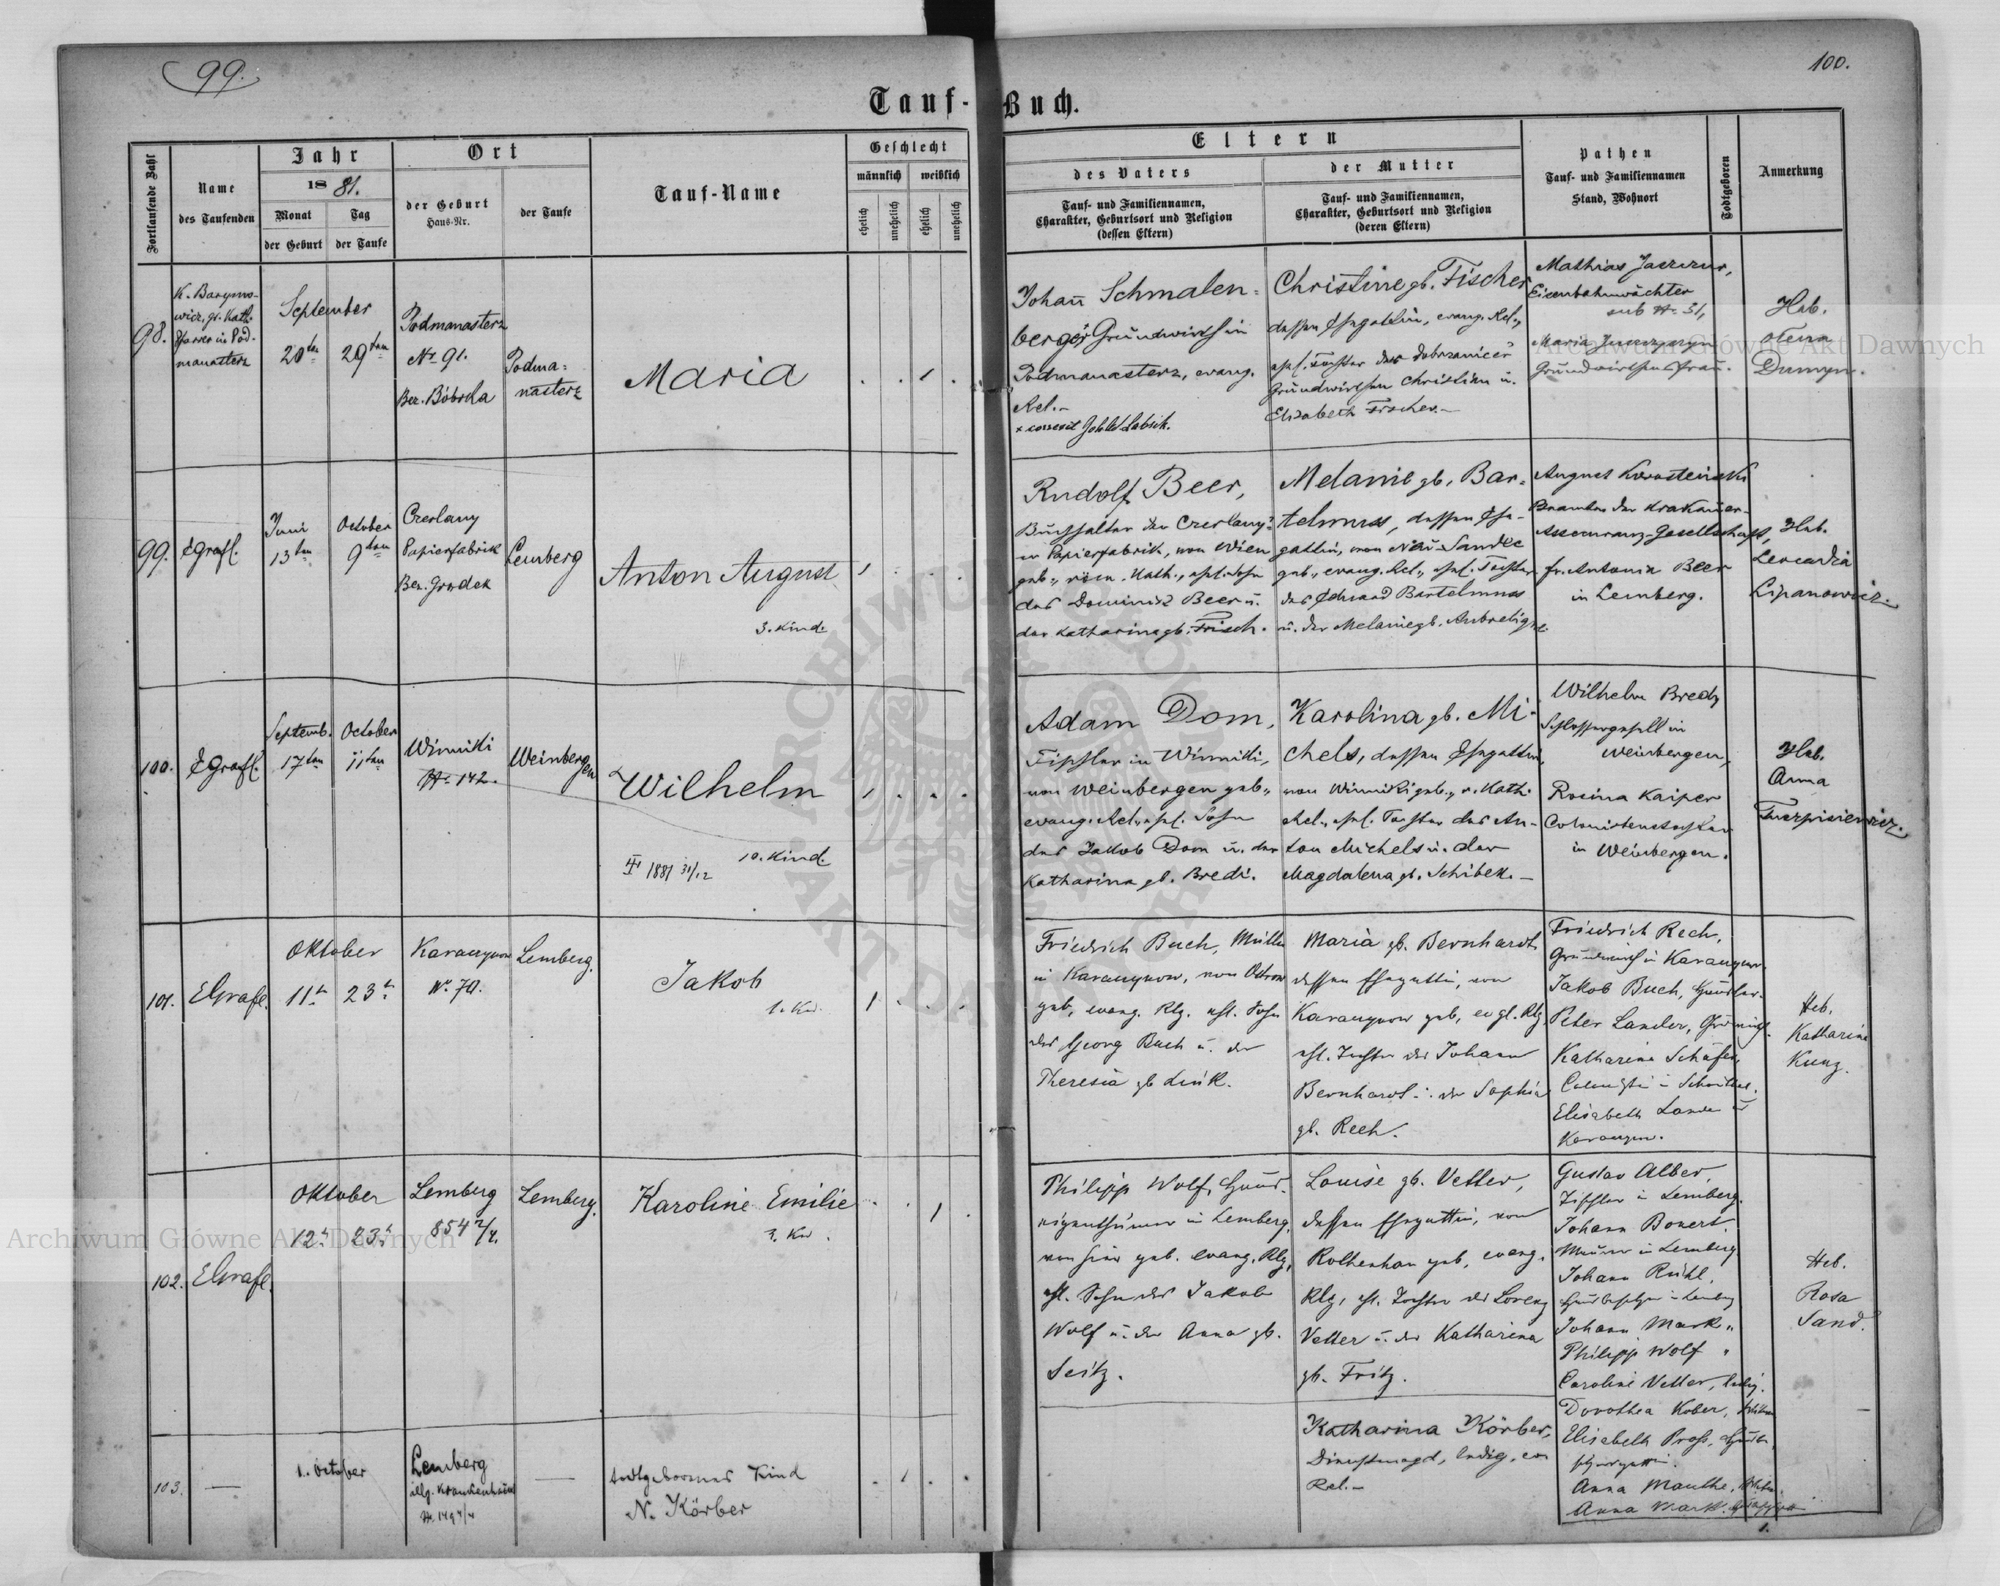 99.
100.
Tauf-Buch.
Fortlaufende Zahl
Name
des Taufenden
Jahr
1881.
Monat
Tag
der Geburt
der Taufe
Ort
der Geburt
Haus-Nr.
der Taufe
Tauf-Name
Geschlecht
männlich
weiblich
ehelich
unehelich
ehelich
unehelich
Eltern
des Vaters
Tauf- und Familiennamen,
Charakter, Geburtsort und Religion
(dessen Eltern)
der Mutter
Tauf- und Familiennamen,
Charakter, Geburtsort und Religion
(deren Eltern)
Pathen
Tauf- und Familiennamen
Stand, Wohnort
Todtgeboren
Anmerkung
98.
K. Baryno-
wicz, gr. Kath.
Pfarrer in Pod-
manasterz
September
20ten
29ten
Podmanasterz
No 91.
Bez. Bóbrka
Podma=
nasterz
Maria
Johan̄ Schmalen=
berger Grundwirth in
Podmanasterz, evang.
Rel.–
Christine gb. Fischer
dessen Ehegattin, evang. Rel.,
ehel. Tochter des Dobrzanicer
Grundwirthen Christian u.
Elisabeth Fischer.–
Mathias
Eisenbahnwächter
sub No 51,
Maria
Grundwirthensfrau.
Heb.
Olena
99.
EGrafl.
Juni
13ten
October
9ten
Czerlany
Papierfabrik
Bez. Grodek
Lemberg
Anton August
3. Kind.
Rudolf Beer,
Buchhalter der Czerlany=
er Papierfabrik, von Wien
geb., röm. Kath., ehel. Sohn
des Dominik Beer u.
der Katharina gb. Frisch.
Melanie gb. Bar=
telmuss, dessen Ehe-
gattin, von Neu-Sandec
geb., evang. Rel., ehel. Tochter
des Eduard Bartelmuss
u. der Melanie gb.
August
Beamter der Krakauer-
Assecuranz-Gesellschaft,
Fr. Antonia Beer
in Lemberg.
Heb.
Leocadia
Lipanowicz.
100.
EGrafl.
Septemb.
17ten
October
11ten
Winniki
No 142.
Weinbergen
Wilhelm
10. Kind.
1881 31/12
Adam Dom,
Tischler in Winniki,
von Weinbergen geb.,
evang. Rel., ehel. Sohn
des Jakob Dom u. der
Katharina gb. Bredi.
Karolina gb. Mi-
chels, dessen Ehegattin,
von Winniki geb., r. Kath.
Rel., ehel. Tochter des An-
ton Michels u. der
Magdalena gb. Schibek.–
Wilhelm Bredy
Schlossergesell in
Weinbergen,
Rosina Kaiper
Colonistenstochter
in Weinbergen.
Heb.
Anna
101.
EGrafl.
Oktober
11t
23t
No. 70.
Lemberg.
Jakob
1. Kd.
Friedrich Buch, Müller
geb, evang. Rlg. ehl. Sohn
des Georg Buch u. der
Theresia gb Link.
Maria gb. Bernhardt
dessen Ehegattin, von
geb, evgl. Rlg,
ehl. Tochter des Johann
Bernhardt u. der Sophia
gb. Rech.
Friedrich Rech,
Jakob Buch,
Peter Lander,
Katharina Schäfer,
Elisabeth
Heb.
Katharina
Kunz.
102.
EGrafl.
Oktober
12t
23t
Lemberg
854 2/4.
Lemberg.
Karoline Emilie
Philipp Wolf, Haus-
eigenthümer in Lemberg,
von hier geb. evang. Rlg,
ehl. Sohn des Jakob
Wolf u. der Anna gb.
Seitz.
Louise gb. Vetter,
dessen Ehegattin, von
Rottenhan geb, evang.
Rlg, ehl. Tochter des Lorenz
Vetter u. der Katharina
gb. Fritz.
Gustav Alber,
Tischler in Lemberg.
Johann Bonert
Maurer in Lemberg
Johann Rühl,
Johann Mark "
Philipp Wolf "
Caroline Vetter, ledig.
Dorothea Kober,
Elisabeth
Anna Manthe,
Anna Mark.
Heb.
Rosa
Sand.
103.
1. October
Lemberg
allg. Krankenhaus
No. 149 4/4
todtgeborenes Kind
N. Körber
Katharina Körber,
Dienstmagd, ledig, ev
Rel.–
1.
Archiwum Główne Akt Dawnych
Archiwum Główne Akt Dawnych